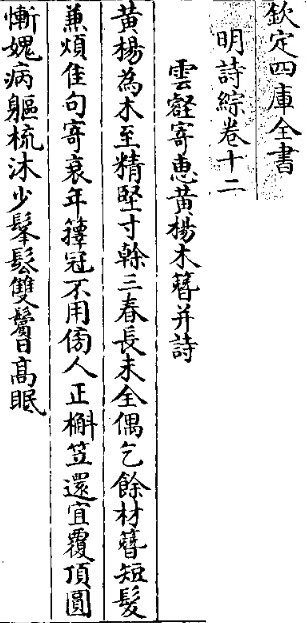 欽定四庫全書
明詩綜卷十二
雲壑寄惠黃楊木簪并詩
黃楊為木至精堅寸榦三春長未全偶乞餘材簪短髮
兼煩佳句寄衰年籜冠不用傍人正槲笠還宜覆頂圓
慚媿病軀梳沐少鬅鬆雙鬢日高眠